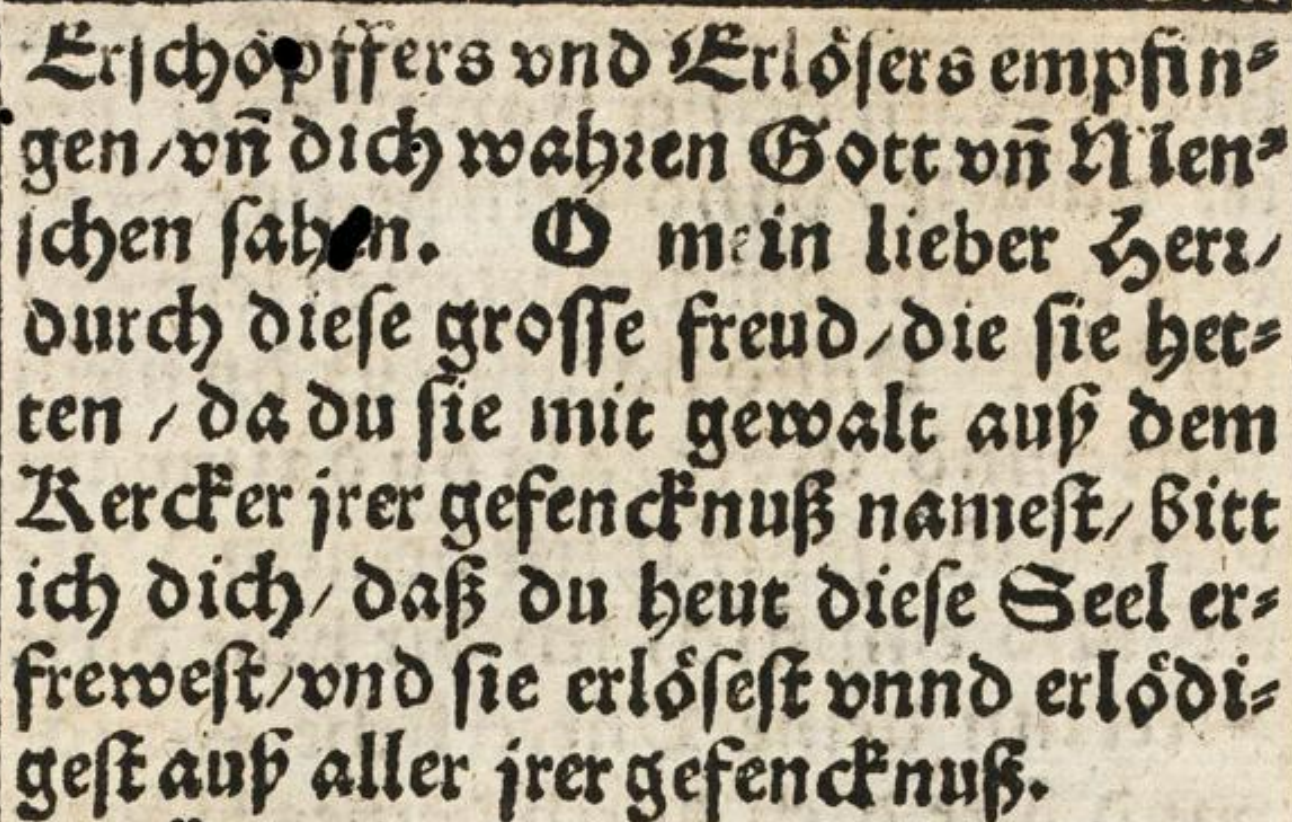 Erschöpffers vnd Erlösers empfin⸗
gen / vñ dich wahren Gott vñ Men⸗
schen sahen. O mein lieber Herr /
durch diese grosse freud / die sie het⸗
ten / da du sie mit gewalt auß dem
Kercker jrer gefencknuß namest / bitt
ich dich / daß du heut diese Seel er⸗
frewest / vnd sie erlösest vnnd erlödi⸗
gest auß aller jrer gefencknuß.